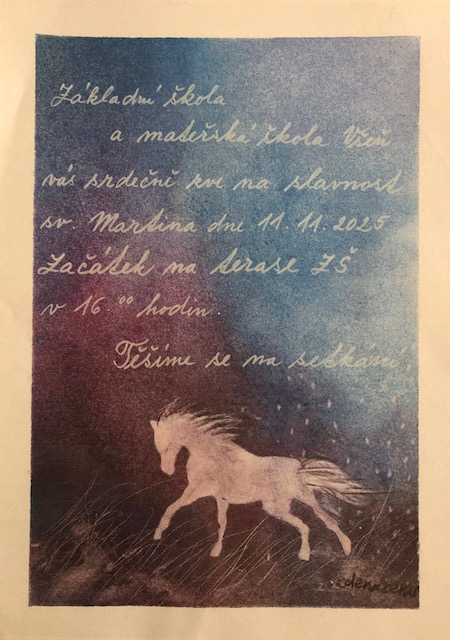 Základní škola
a mateřská škola Všeň
vás srdečně zve na slavnost
sv. Martina dne 11. 11. 2025
Začátek na terase ZŠ
v 16 00 hodin.
Těšíme se na setkání